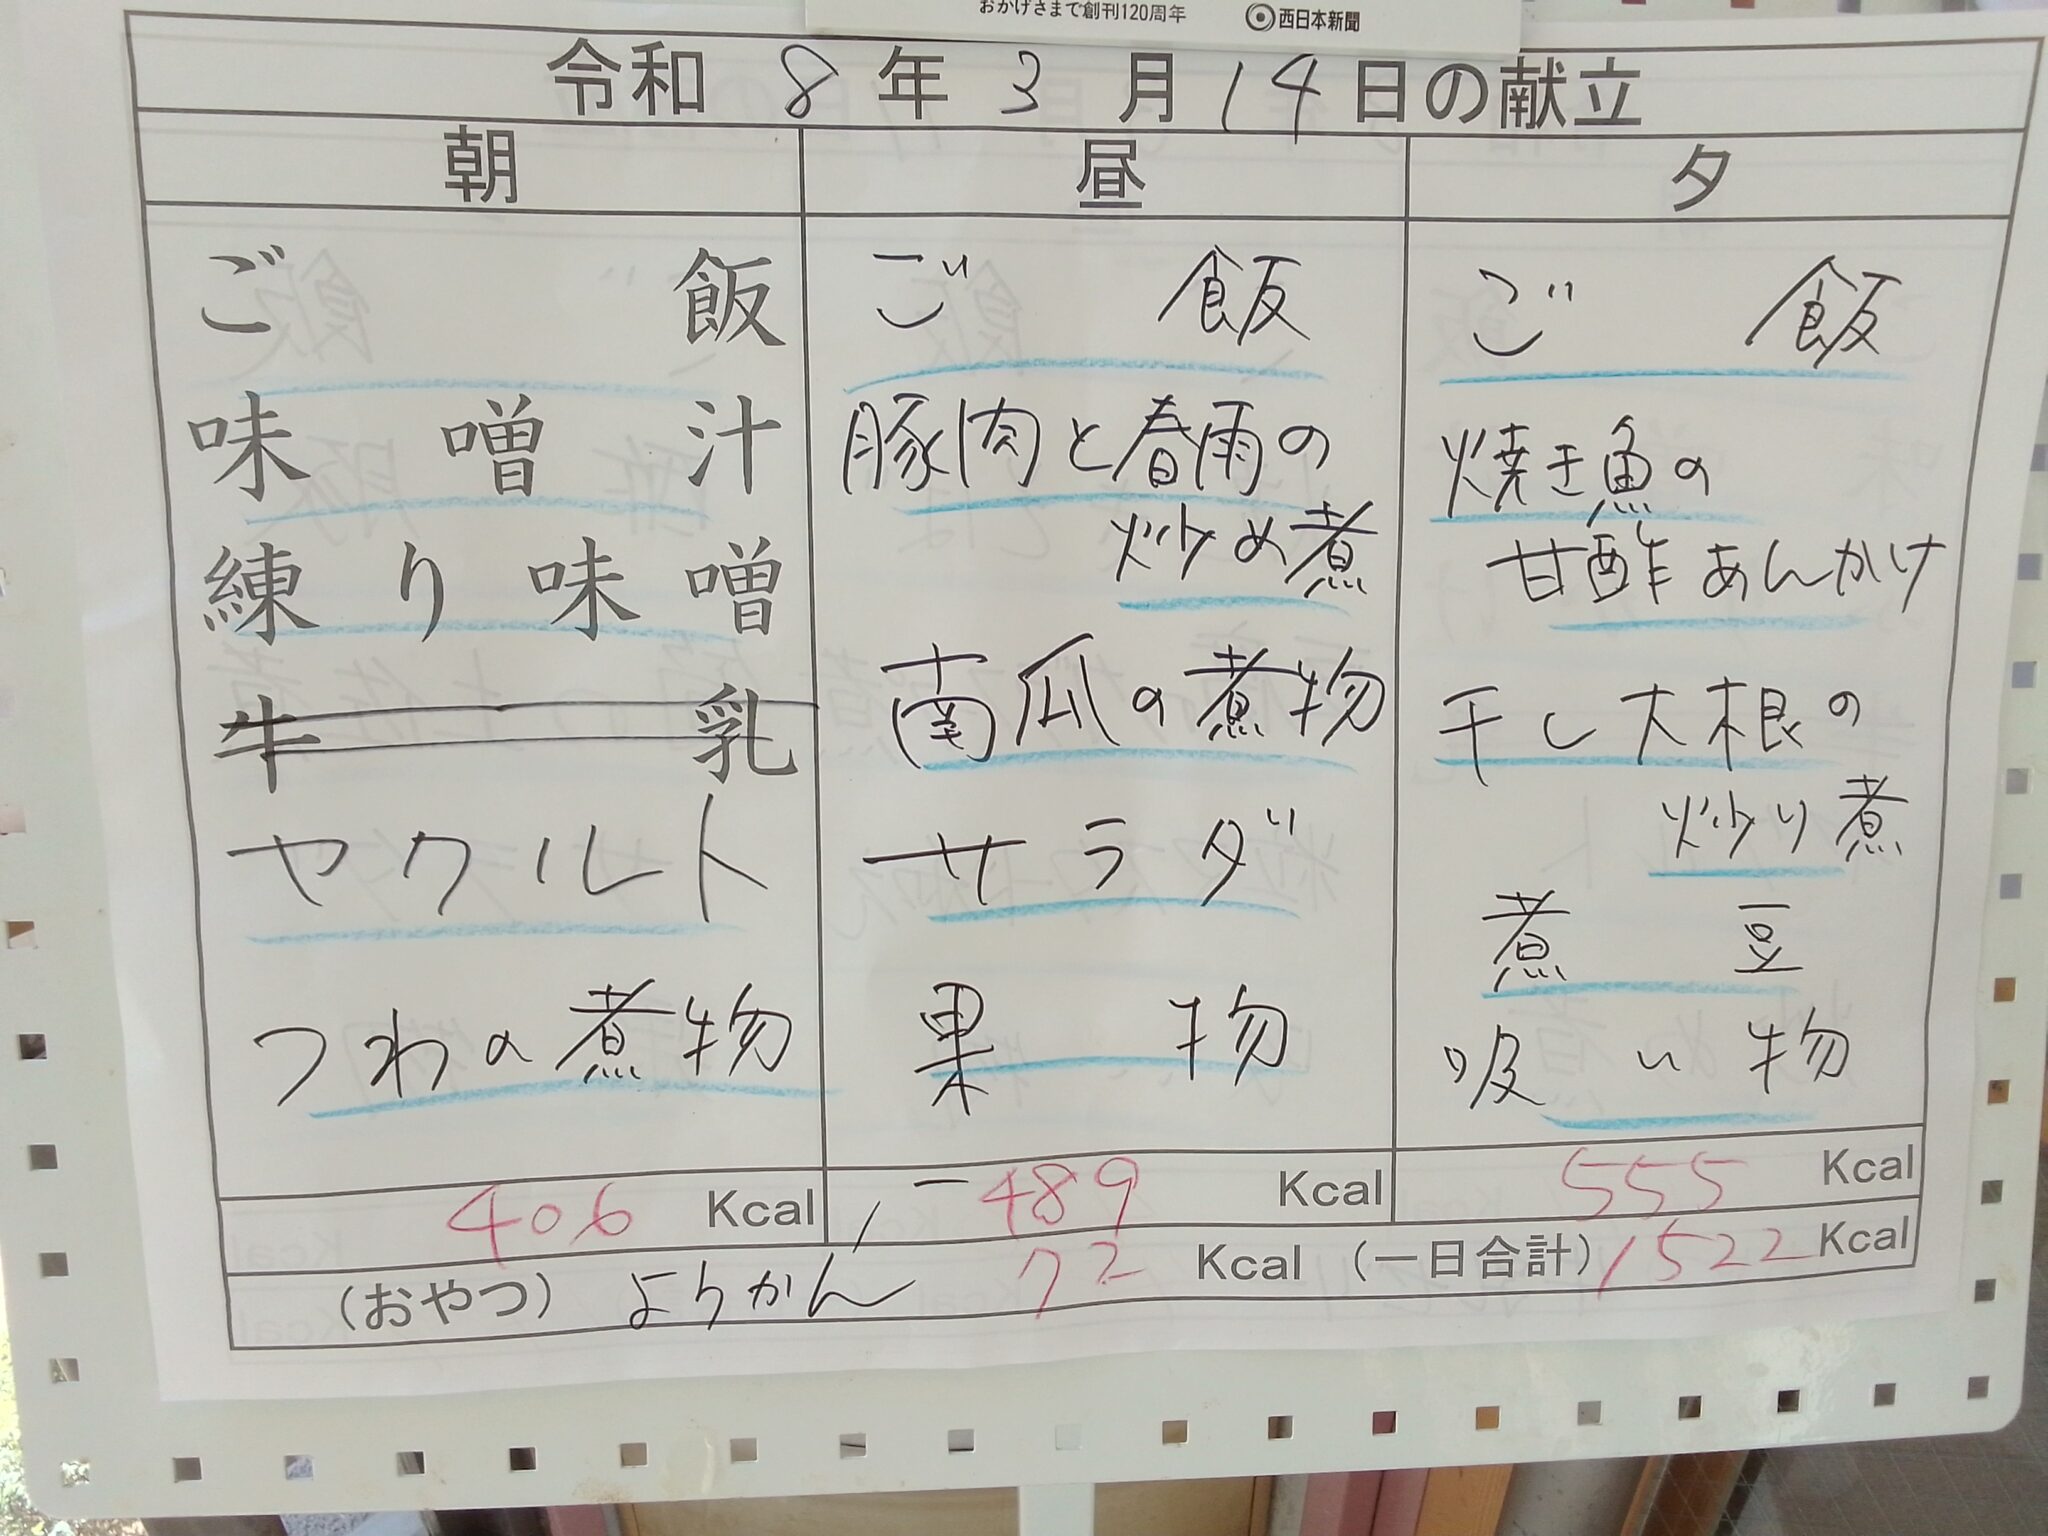 おかげさまで創刊120周年 西日本新聞
令和 8 年 3 月 14 日の献立
朝 昼 夕
ご飯
味噌汁
練り味噌
牛乳
ヤクルト
つわの煮物
406 Kcal
ご飯
豚肉と春雨の
炒め煮
南瓜の煮物
サラダ
果物
489 Kcal
ご飯
焼き魚の
甘酢あんかけ
干し大根の
炒り煮
煮豆
吸い物
555 Kcal
(おやつ) ようかん 72 Kcal (一日合計) 1522 Kcal